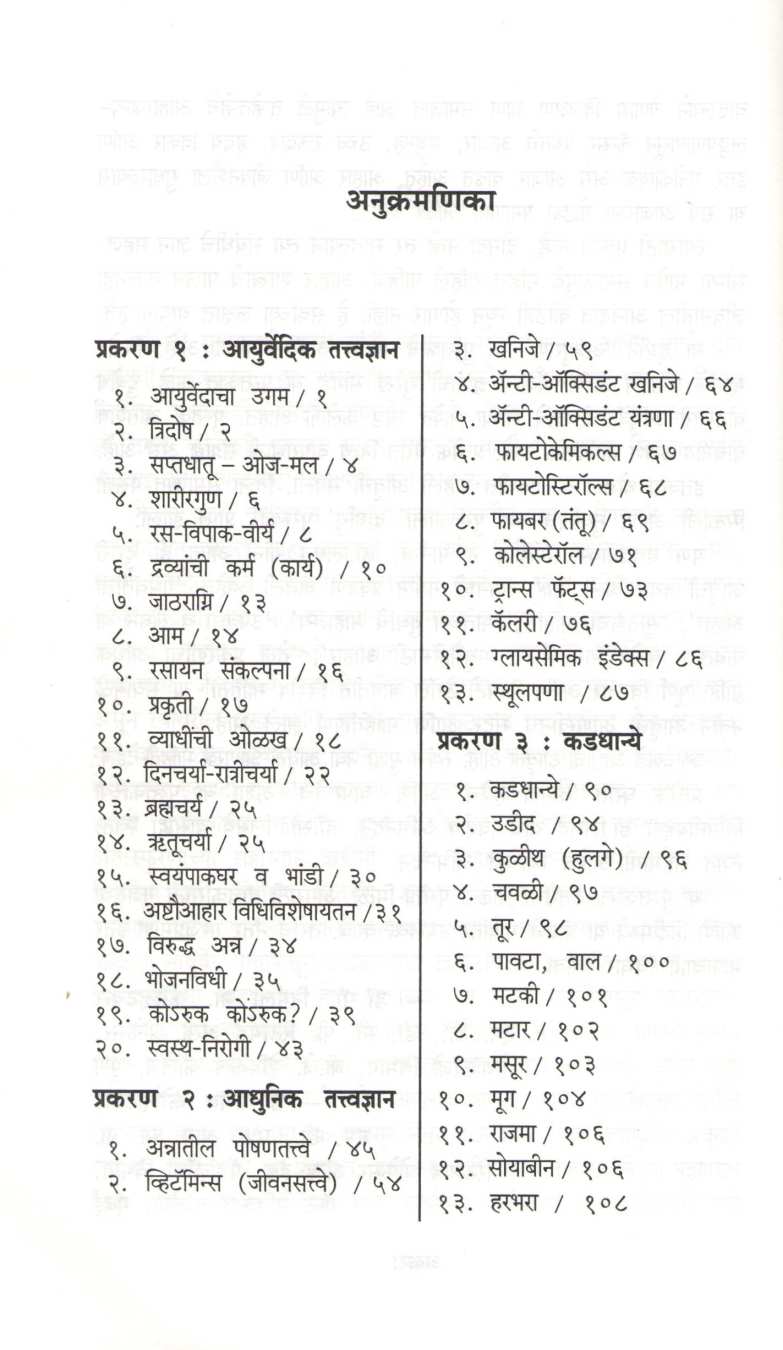 अनुक्रमणिका
प्रकरण १ : आयुर्वेदिक तत्त्वज्ञान
१. आयुर्वेदाचा उगम / १
२. त्रिदोष / २
३. सप्तधातू – ओज-मल / ४
४. शारीरगुण / ६
५. रस-विपाक-वीर्य / ८
६. द्रव्यांची कर्म (कार्य) / १०
७. जाठराग्नि / १३
८. आम / १४
९. रसायन संकल्पना / १६
१०. प्रकृती / १७
११. व्याधींची ओळख / १८
१२. दिनचर्या-रात्रीचर्या / २२
१३. ब्रह्मचर्य / २५
१४. ऋतूचर्या / २५
१५. स्वयंपाकघर व भांडी / ३०
१६. अष्टौआहार विधिविशेषायतन /३१
१७. विरुद्ध अन्न / ३४
१८. भोजनविधी / ३५
१९. कोऽरुक कोऽरुक? / ३९
२०. स्वस्थ-निरोगी / ४३
प्रकरण २ : आधुनिक तत्त्वज्ञान
१. अन्नातील पोषणतत्त्वे / ४५
२. व्हिटॅमिन्स (जीवनसत्त्वे) / ५४
३. खनिजे / ५९
४. ॲन्टी-ऑक्सिडंट खनिजे / ६४
५. ॲन्टी-ऑक्सिडंट यंत्रणा / ६६
६. फायटोकेमिकल्स / ६७
७. फायटोस्टिरॉल्स / ६८
८. फायबर (तंतू) / ६९
९. कोलेस्टेरॉल / ७१
१०. ट्रान्स फॅट्स / ७३
११. कॅलरी / ७६
१२. ग्लायसेमिक इंडेक्स / ८६
१३. स्थूलपणा / ८७
प्रकरण ३ : कडधान्ये
१. कडधान्ये / ९०
२. उडीद / ९४
३. कुळीथ (हुलगे) / ९६
४. चवळी / ९७
५. तूर / ९८
६. पावटा, वाल / १००
७. मटकी / १०१
८. मटार / १०२
९. मसूर / १०३
१०. मूग / १०४
११. राजमा / १०६
१२. सोयाबीन / १०६
१३. हरभरा / १०८